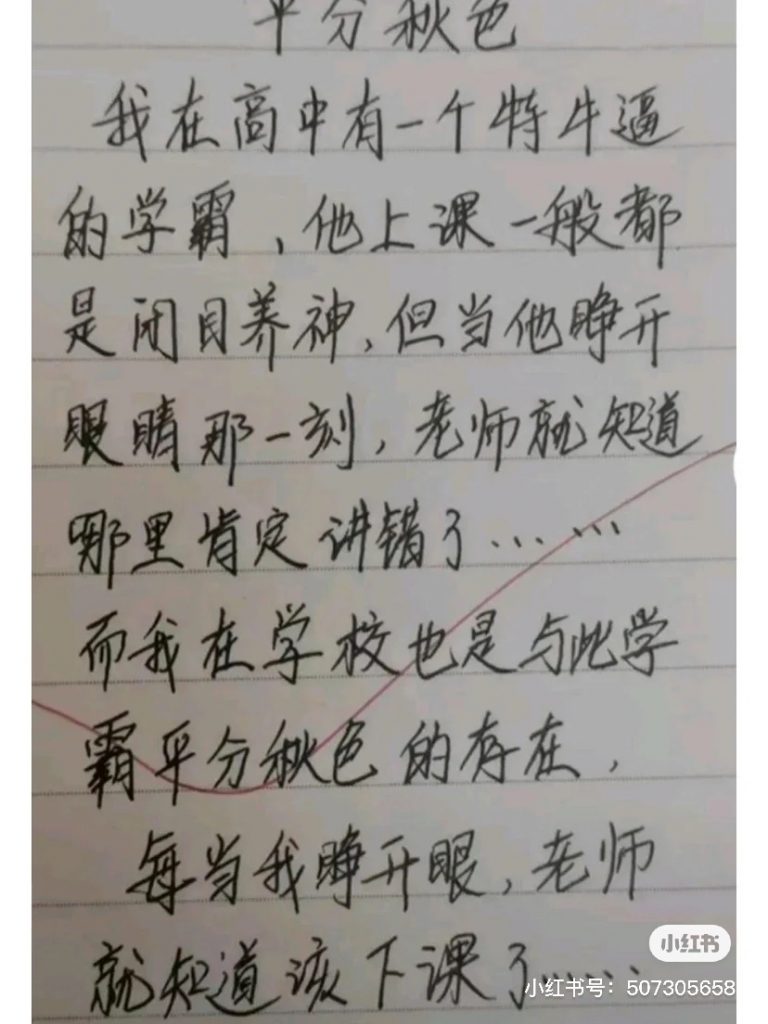 平分秋色
我在高中有一个特牛逼
的学霸，他上课一般都
是闭目养神，但当他睁开
眼睛那一刻，老师就知道
哪里肯定讲错了……
而我在学校也是与此学
霸平分秋色的存在，
每当我睁开眼，老师
就知道该下课了……
小红书
小红书号：507305658